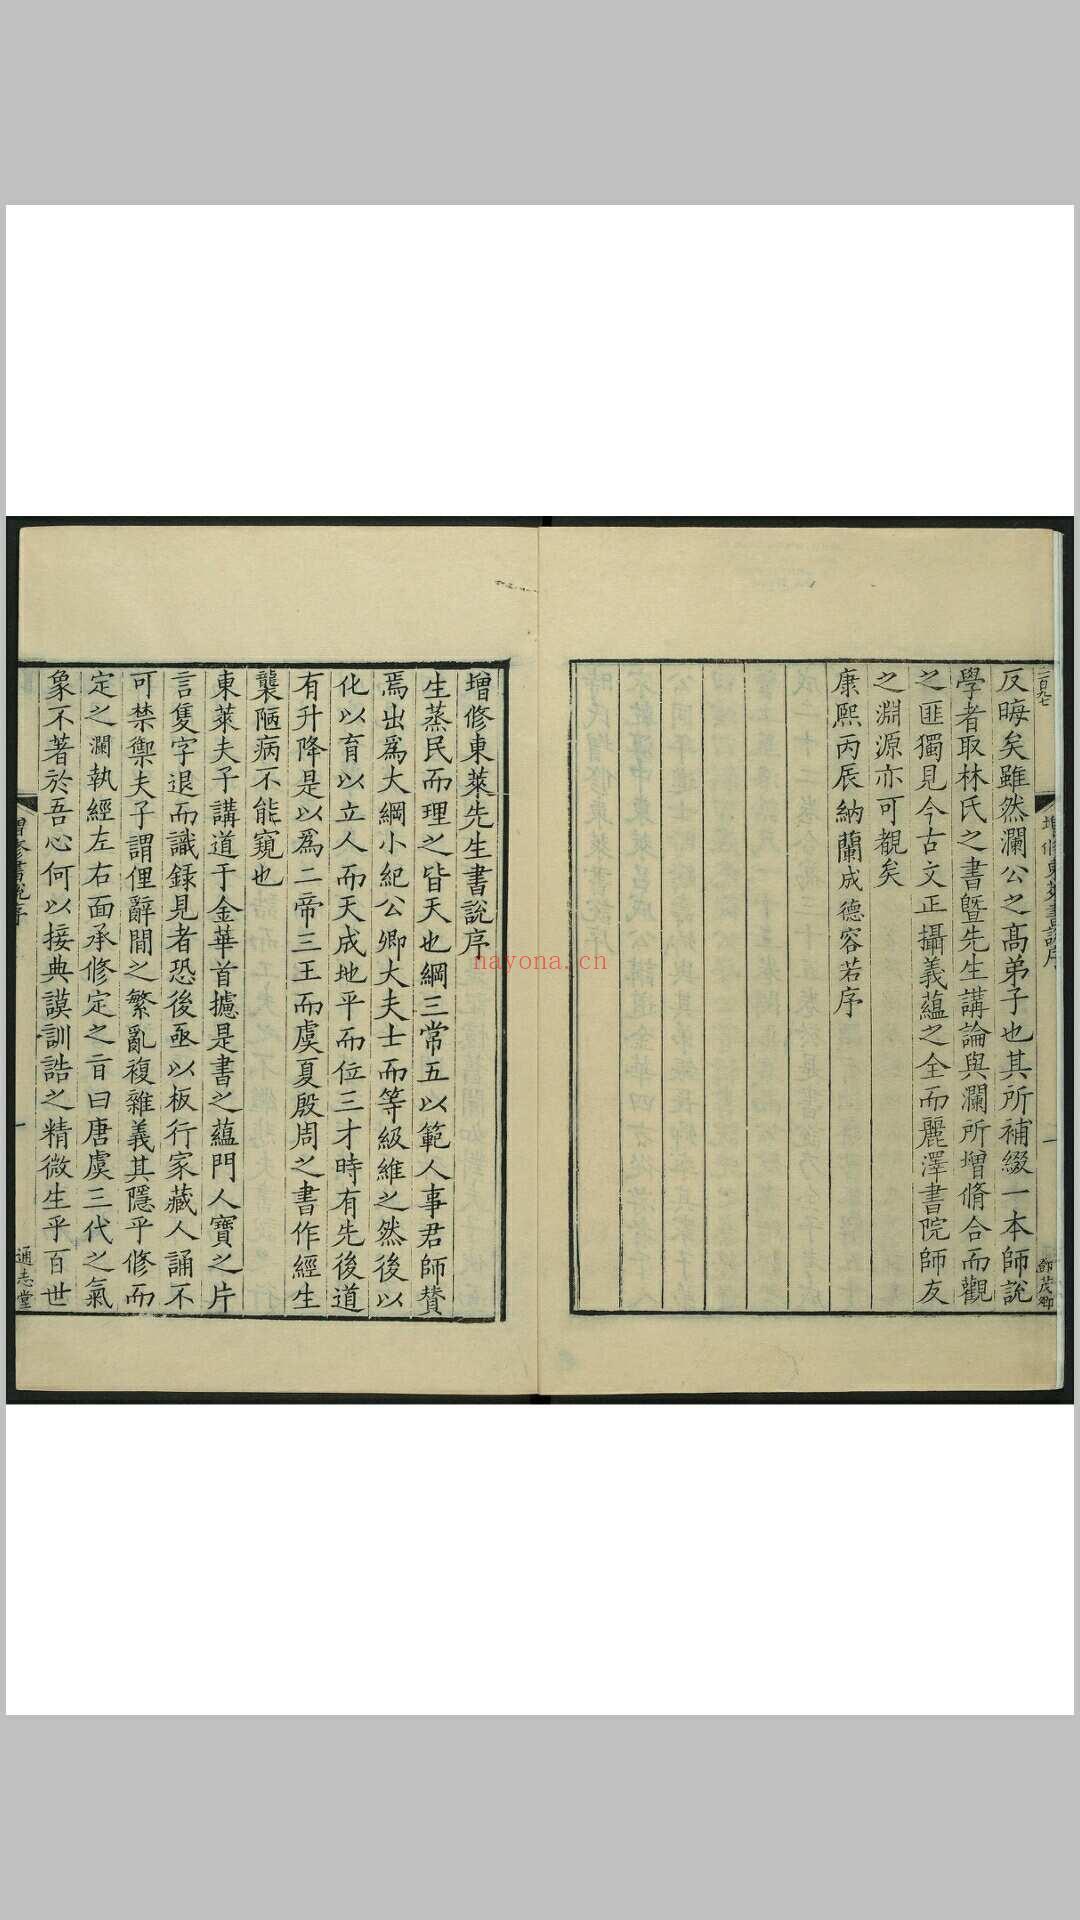 二百九七
增脩東萊書說序
一
鄧茂卿
反晦矣雖然瀾公之高弟子也其所補綴一本師說
學者取林氏之書曁先生講論與瀾所增脩合而觀
之匪獨見今古文正攝義蘊之全而麗澤書院師友
之淵源亦可覩矣
康熙丙辰納蘭成德容若序
增修東萊先生書說序
生蒸民而理之皆天也綱三常五以範人事君師贊
焉出爲大綱小紀公卿大夫士而等級維之然後以
化以育以立人而天成地平而位三才時有先後道
有升降是以爲二帝三王而虞夏殷周之書作經生
襲陋病不能窺也
東萊夫子講道于金華首攄是書之蘊門人寶之片
言隻字退而識錄見者恐後亟以板行家藏人誦不
可禁禦夫子謂俚辭閒之繁亂複雜義其隱乎修而
定之瀾執經左右面承修定之旨曰唐虞三代之氣
象不著於吾心何以接典謨訓誥之精微生乎百世
增修書說序
一
通志堂
nayona.cn